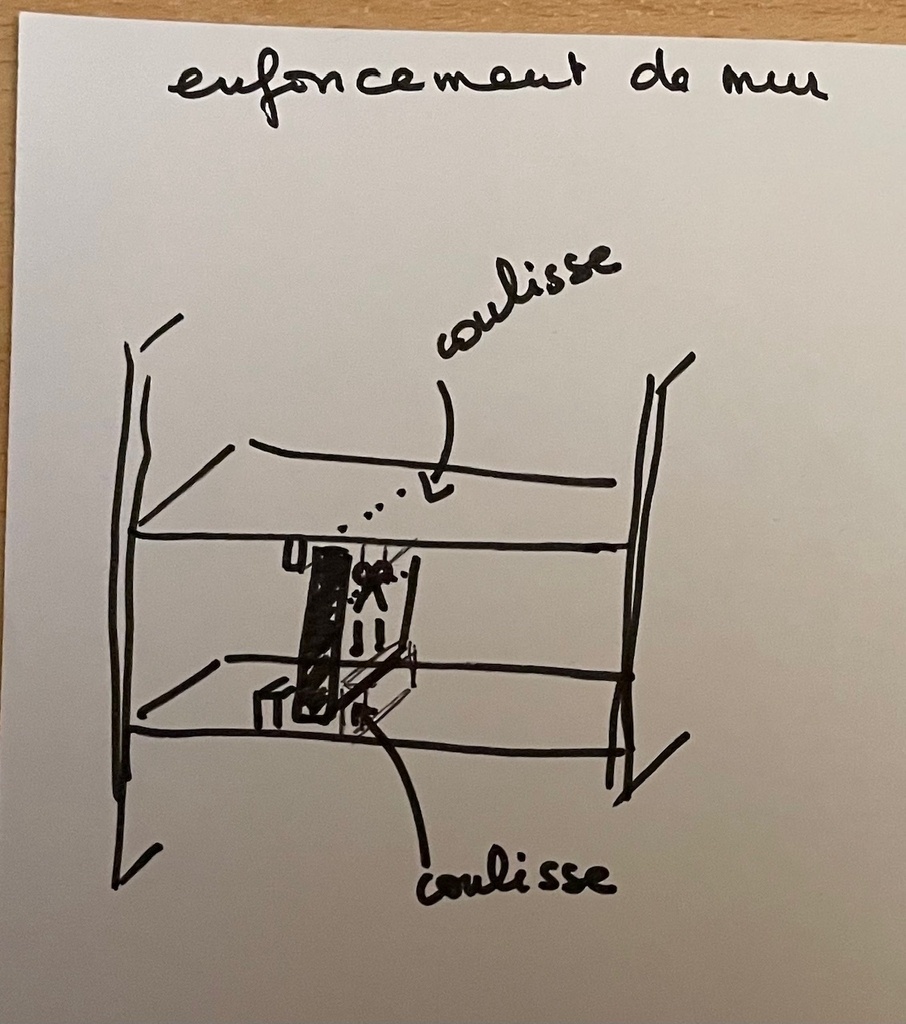 enfoncement de mur
coulisse
coulisse